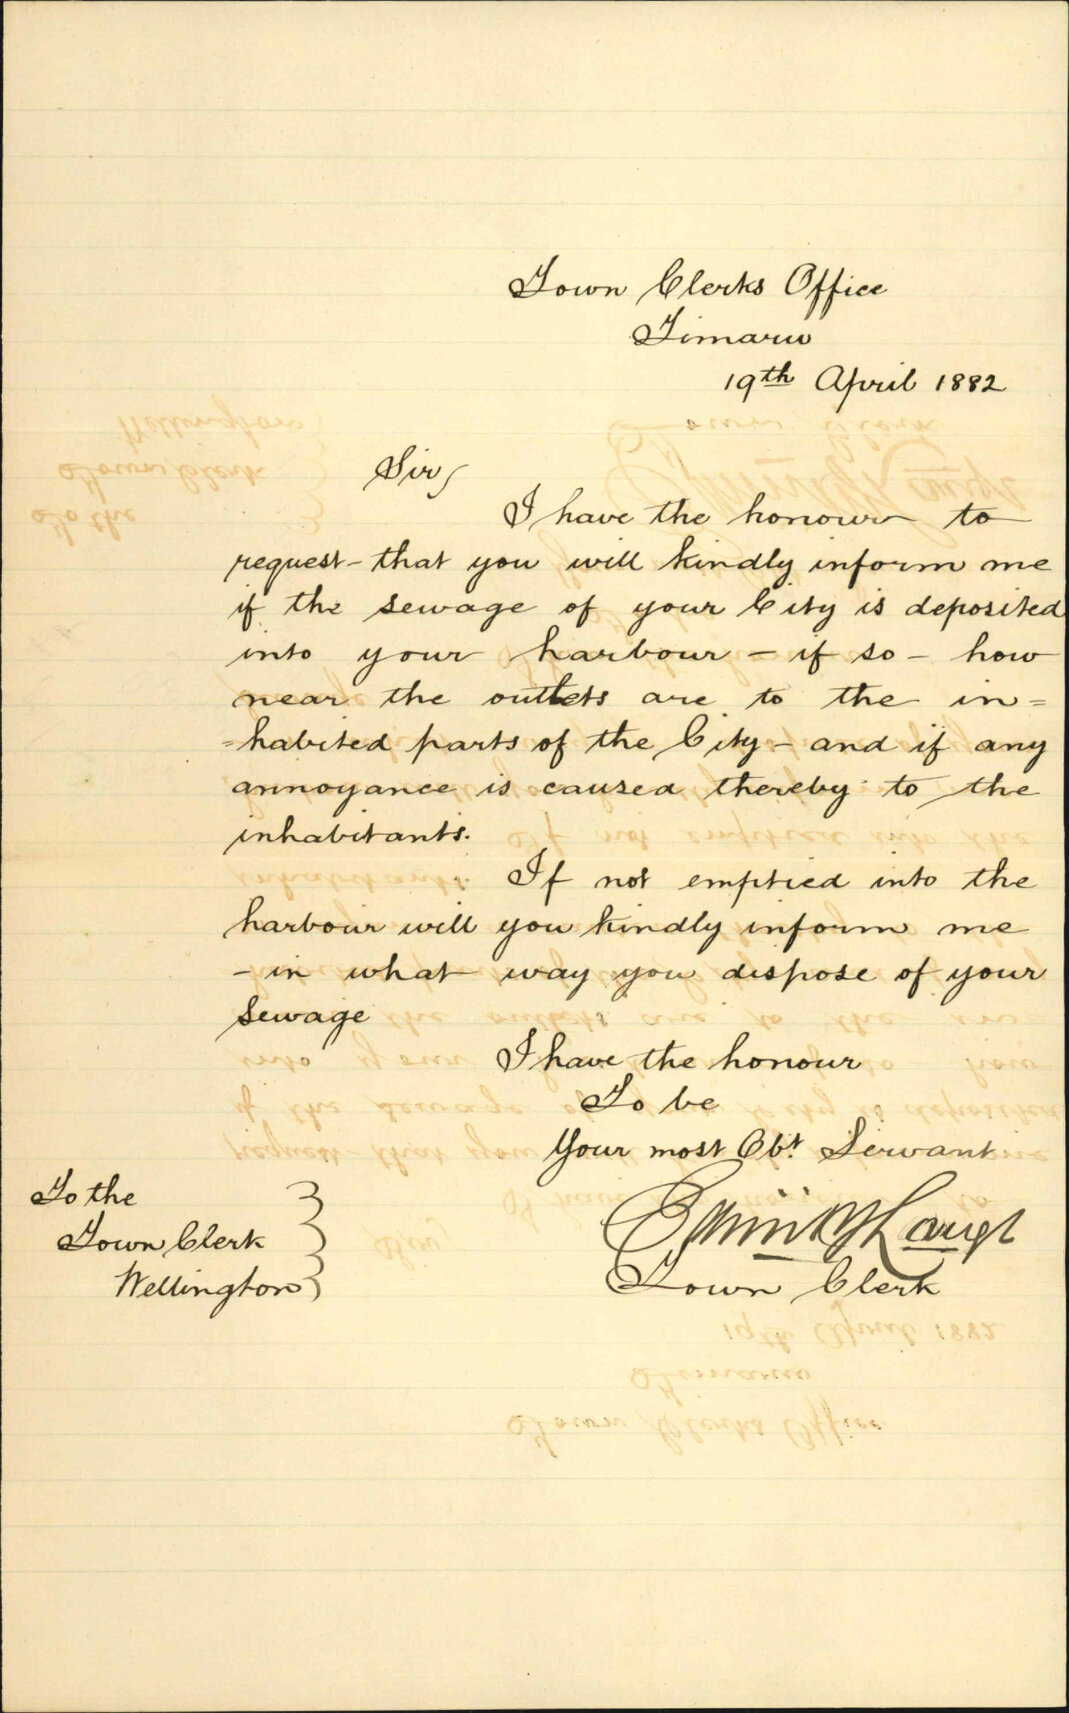 Town Clerks Office
Timaru
19th April 1882
Sir,
I have the honour to
request - that you will kindly inform me
if the sewage of your City is deposited
into your harbour - if so - how
near the outlets are to the in=
=habited parts of the City - and if any
annoyance is caused thereby to the
inhabitants.
If not emptied into the
harbour will you kindly inform me
- in what way you dispose of your
Sewage
I have the honour
To be
Your most Obt Servant
To the
Town Clerk
Wellington
Town Clerk